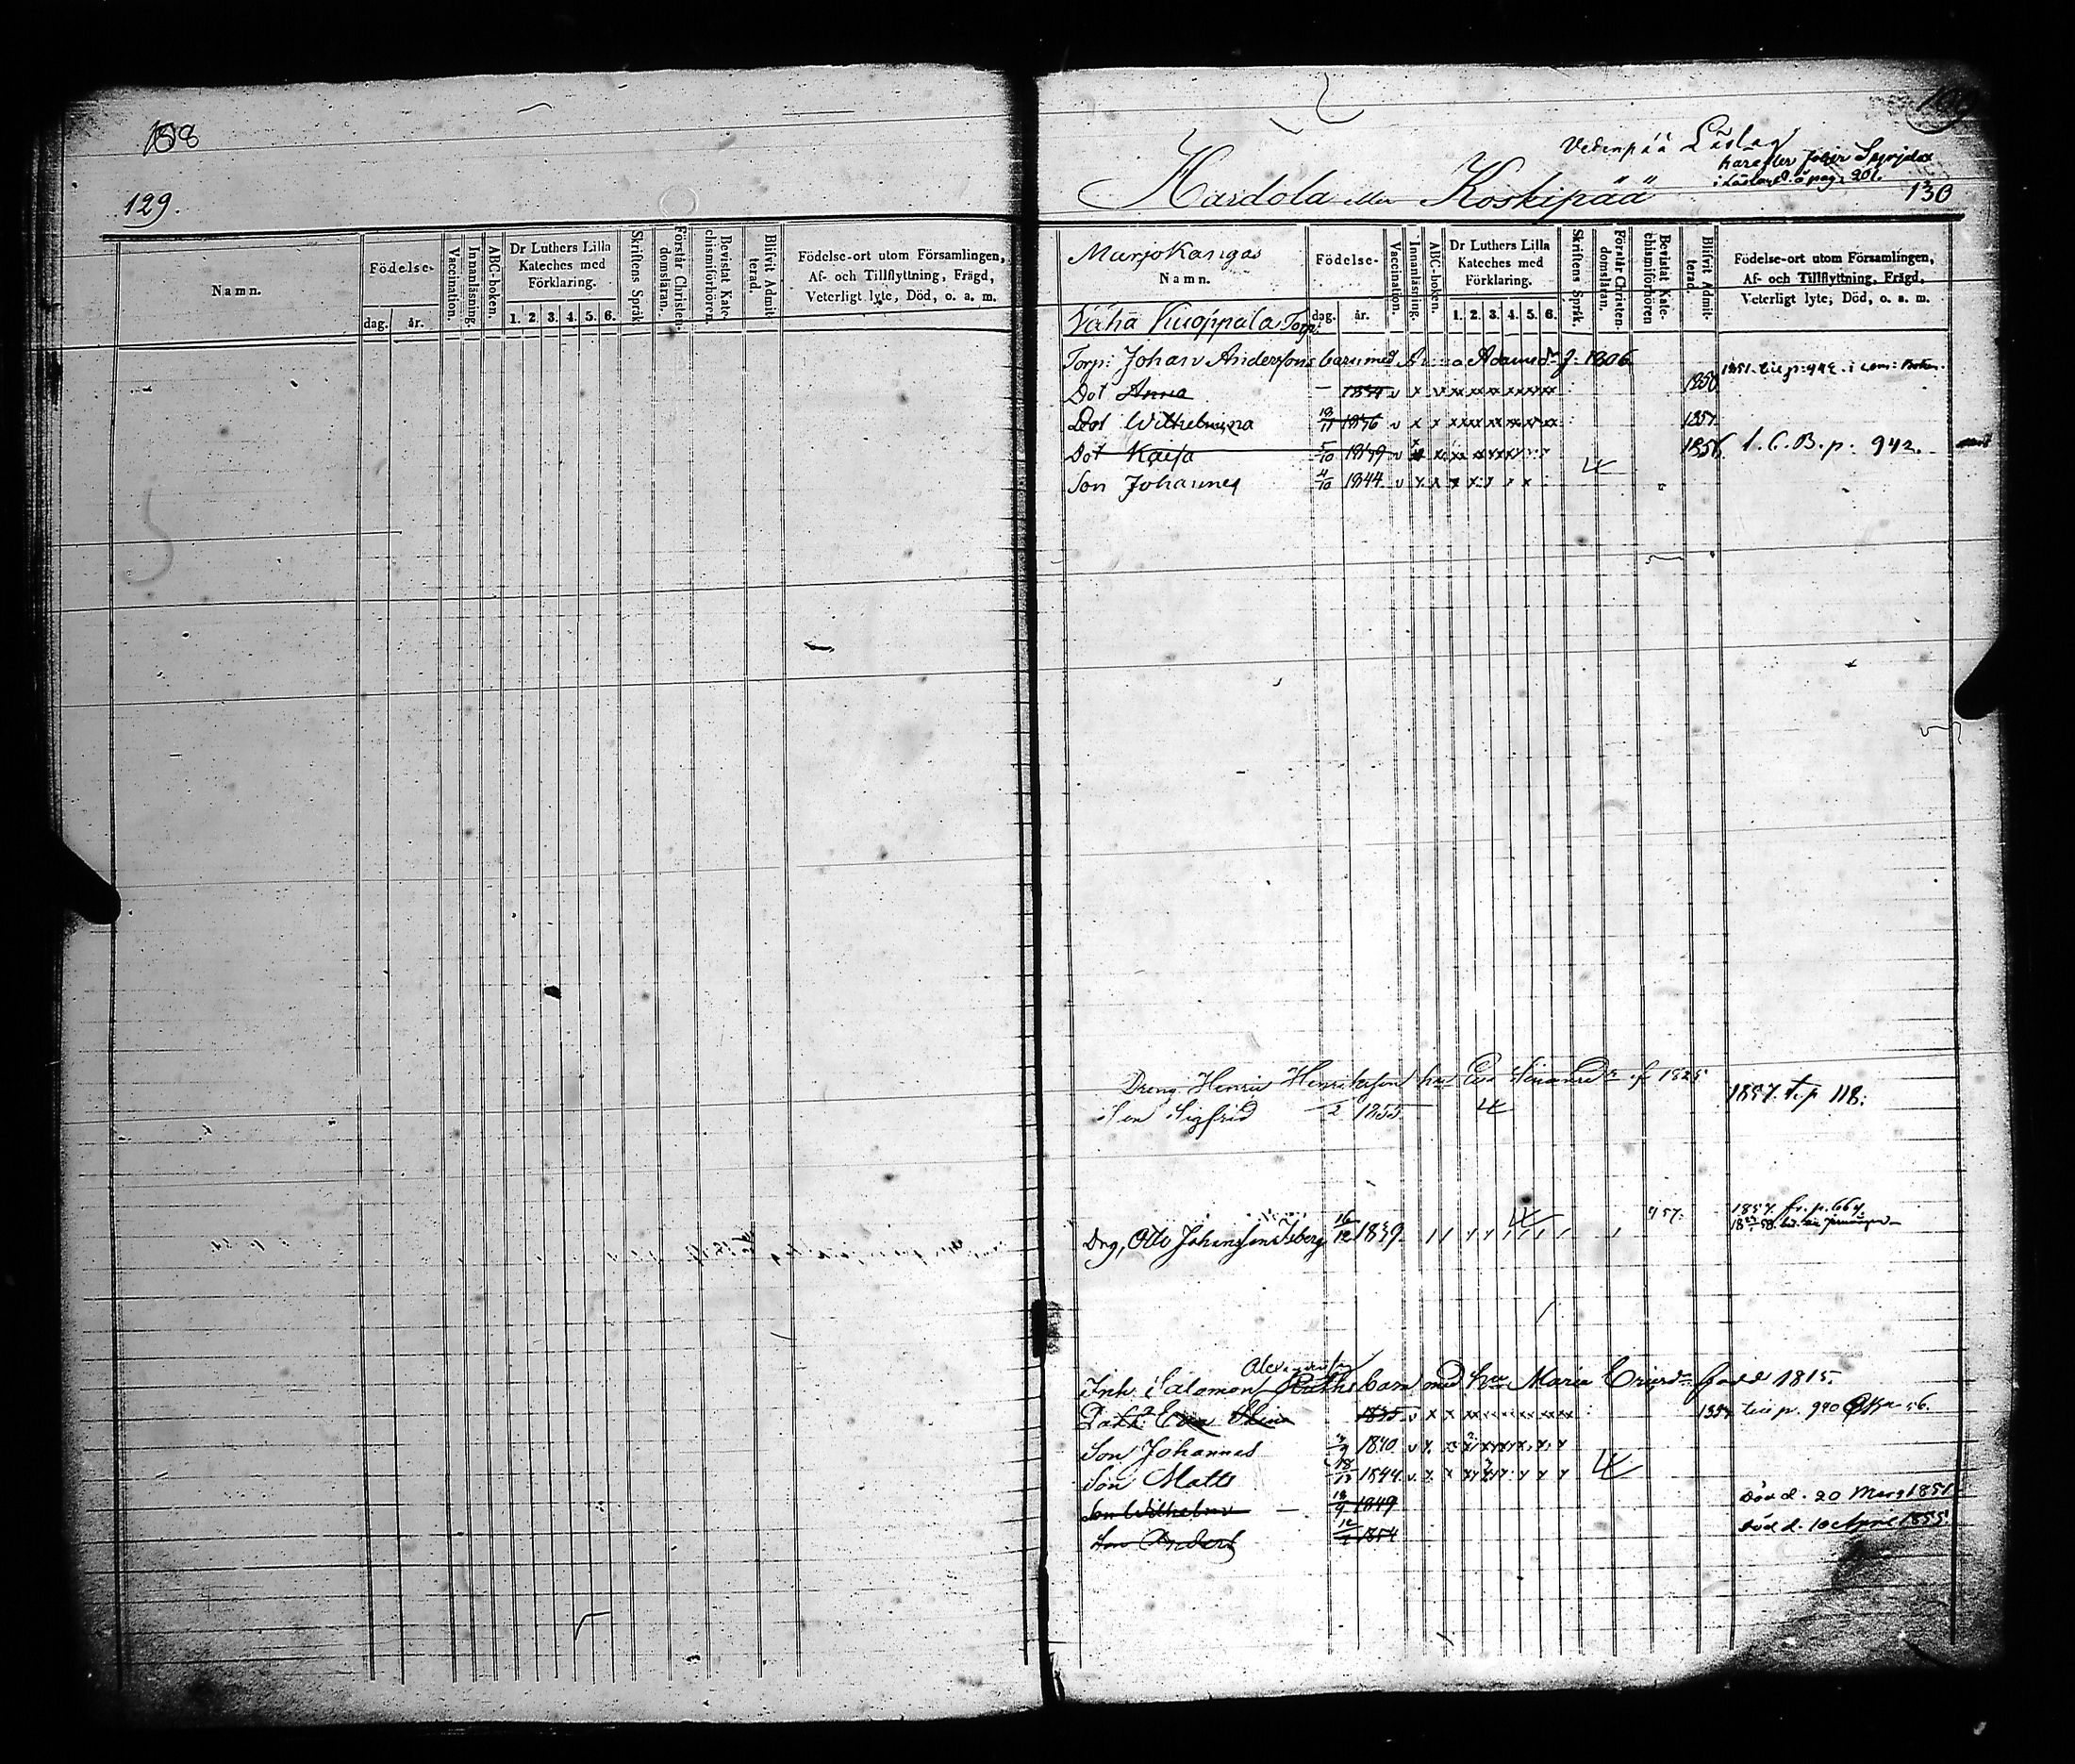 188
129.
Namn.
Födelse-
dag. år.
Vaccination.
Innanläsning.
ABC-boken.
Dr Luthers Lilla
Kateches med
Förklaring.
1. 2. 3. 4. 5. 6.
Skriftens Språk
Förstår Christen-
domsläran.
Bevistat Kate-
chismiförhören.
Blifvit Admit-
terad.
Födelse-ort utom Församlingen,
Af- och Tillflyttning, Frägd,
Veterligt lyte, Död, o. a. m.
Vedenpää Läslag
härefter följer
i Läsland. å pag. 201.
130
Hardola eller Koskipää
Marjokangas
Namn.
Födelse-
dag. år.
Vaccination.
Innanläsning.
ABC-boken.
Dr Luthers Lilla
Kateches med
Förklaring.
1. 2. 3. 4. 5. 6.
Skriftens Språk.
Förstår Christen-
domsläran.
Bevistat Kate-
chismiförhören
Blifvit Admit-
terad.
Födelse-ort utom Församlingen,
Af- och Tillflyttning, Frägd,
Veterligt lyte, Död, o. a. m.
Vähä Kuoppala Torp:
Torp: Johan Anderssons barn med Adamsdr f. 1806
Dot Anna 1834 v x 1850 1851. till p: 942. i
Dot Wilhelmina 18/11 1836 v x x 1857.
Dot Kaisa 5/10 1839 v 1856 l. C. B. p: 942.
Son Johannes 4/10 1844 v x x x
Dreng Henric Henriksson hu Eva f 1825
Son Sigfrid 2 1855 1857. t. p 118.
Dng, Otto Johansson Isberg 16/12 1839 57. 1857. fr. p. 664.
Alexandersson
Inh: Salomon barn med hu Maria Ericsdr född 1815.
Dottr Eva 1835 v x x till p. 940
Son Johannes 1840 v x.
Son Matts 1844 v x. x
Son Wilhelm 18/9 1849 Död d. 20 Mars 1851
Son Anders 1854 död d. 10 April 1855